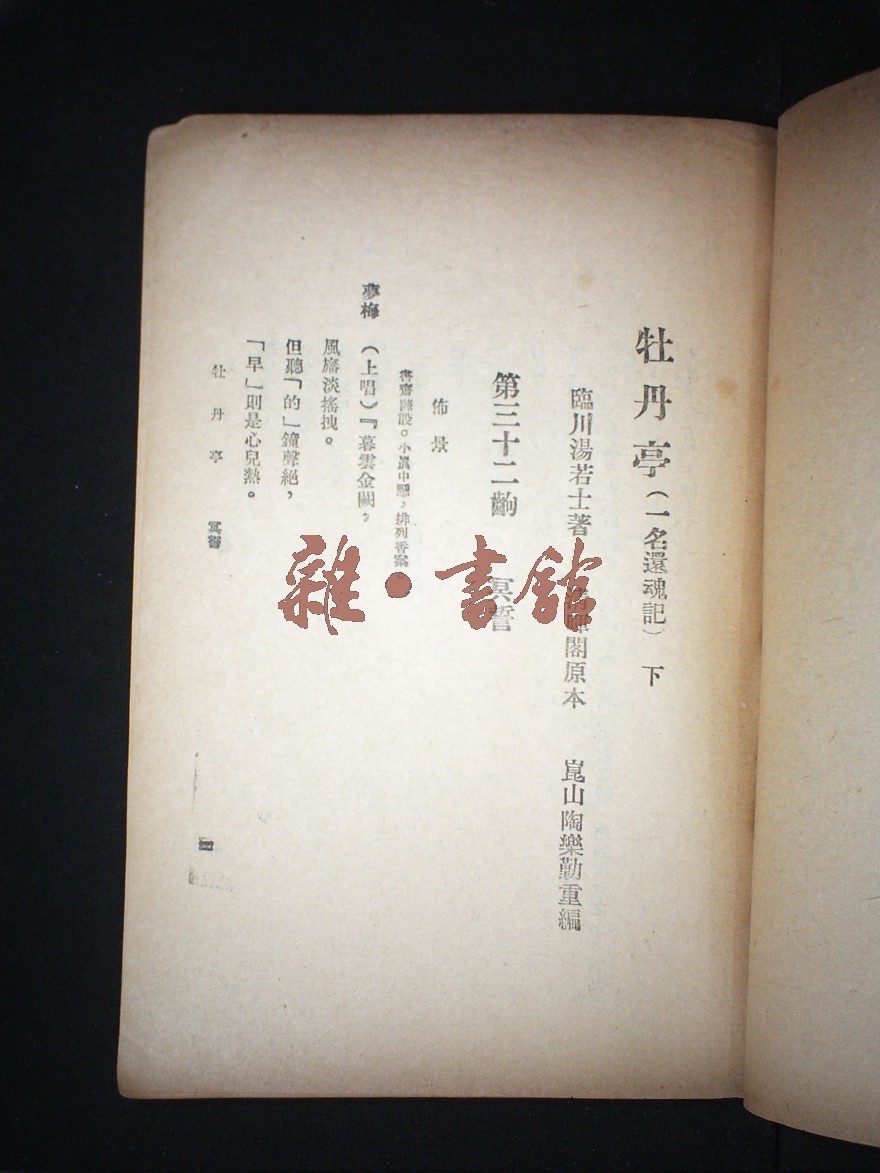 牡丹亭(一名還魂記) 下
臨川湯若士著 暉閣原本 崑山陶樂勤重編
第三十二齣 冥誓
佈景
書齋陳設。小眞中懸,排列香案。
夢梅 (上唱)『暮雲金闕,
風旛淡搖拽。
但聽「的」鐘聲絕,
「早」則是心兒熱。
牡丹亭 冥誓
一
雜·書館